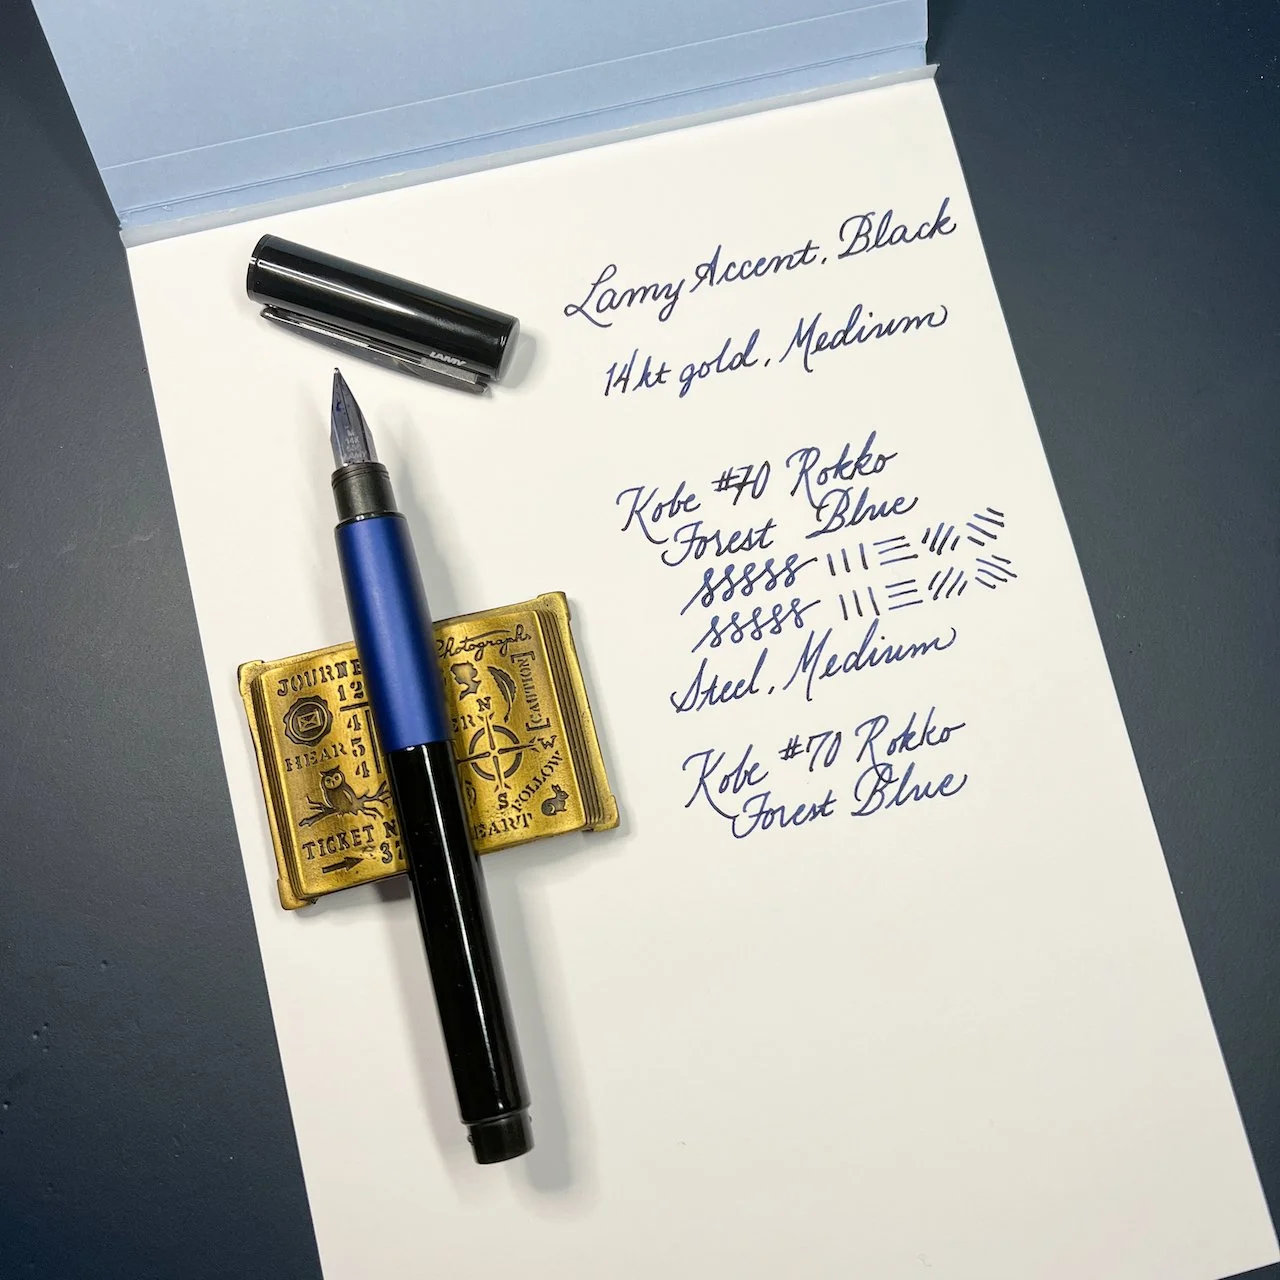 Lamy Accent, Black
14kt gold, Medium
Kobe #70 Rokko
Forest Blue
Steel, Medium
Kobe #70 Rokko
Forest Blue
LAMY
M
14K
Photograph
JOURNE
12
4
5
4
HEAR
ERN
N
[CAUTION]
W
S
FOLLOW
TICKET N
EART
37